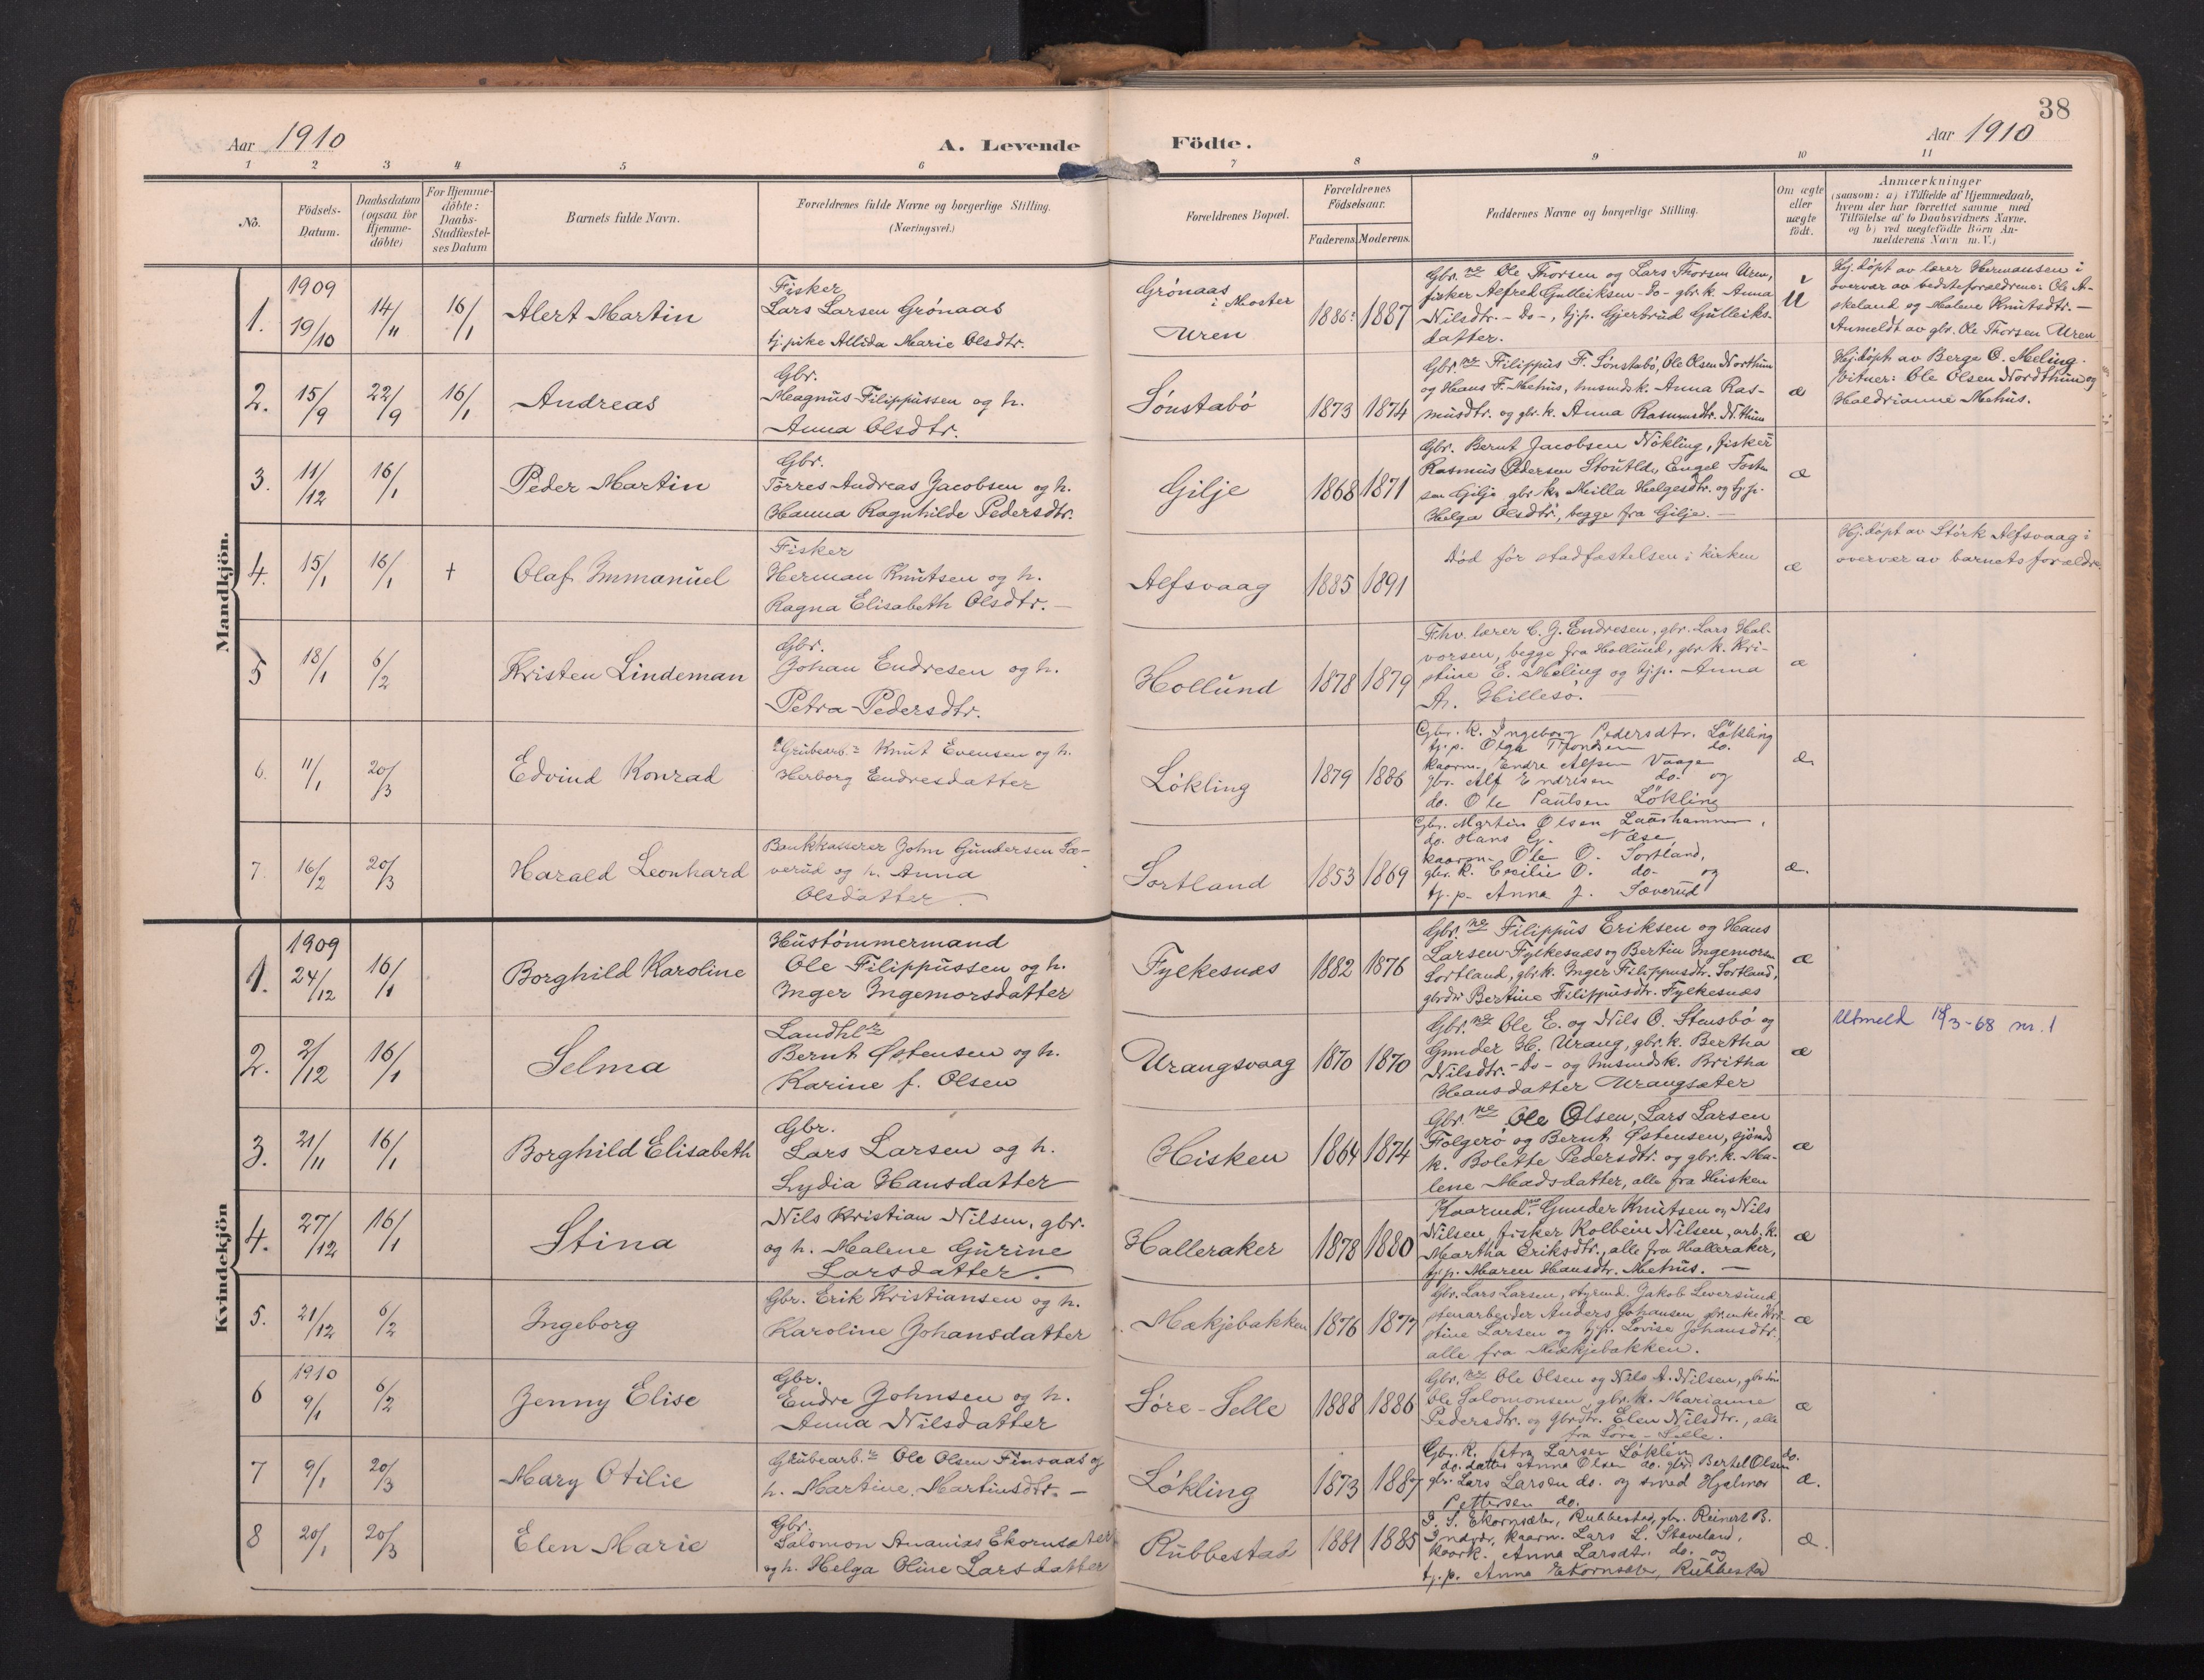 38
Aar 1910
A. Levende
Födte.
Aar 1910
1 2 3 4 5 6 7 8 9 10 11
No.
Födsels-
Datum.
Daabsdatum
(ogsaa for
Hjemme-
döbte)
For Hjemme-
döbte:
Daabs-
Stadfæstel-
ses Datum
Barnets fulde Navn.
Forældrenes fulde Navne og borgerlige Stilling.
(Næringsvei.)
Forældrenes Bopæl.
Forældrenes
Födselsaar.
Faderens. Moderens.
Faddernes Navne og borgerlige Stilling.
Om ægte
eller
uægte
födt.
Anmærkninger
(saasom: a) i Tilfælde af Hjemmedaab,
hvem der har forrettet samme med
Tilföielse af to Daabsvidners Navne,
og b) ved uægtefödte Börn An-
melderens Navn m. V.)
Mandkjön.
1.
1909
19/10
14/11
16/1
Alert Martin
Fisker
Lars Larsen Grönaas
tj. pike Allida Marie Olsdtr.
Grönaas
i Moster
Uren
1886 1887
Gbr.ne Ole Thorsen og Lars Thorsen Uren,
fisker Alfred Gulleiksen - Do - gbr. k. Anna
Nilsdtr. - Do -, tj. p. Gjertrud Gulleiks-
datter.
u
Hj. döpt av lærer Hermansen i
overvær av bedsteforældrene: Ole A-
skeland og Malene Knutsdtr. -
Anmeldt av gbr. Ole Thorsen Uren
2.
15/9
22/9
16/1
Andreas
Gbr.
Magnus Filippussen og h.
Anna Olsdtr.
Sönstabö
1873 1874
Gbr.ne Filippus F. Sönstabö, Ole Olsen Northun
og Hans F. Mehus, husmdsk. Anna Ras-
musdtr. og gbr. k. Anna Rasmusdtr. N. thun
æ
Hj. döpt av Berge O. Meling.
Vitner: Ole Olsen Nordthun og
Haldrianne Mehus.
3.
11/12
16/1
Peder Martin
Gbr.
Törres Andreas Jacobsen og h.
Hanna Ragnhilde Pedersdtr.
Gilje
1868 1871
Gbr. Bernt Jacobsen Nökling, fisker
Rasmus Pedersen Engel
sen Gilje gbr. k. Milla Helgesdtr. og tj. p.
Helga Olsdtr., begge fra Gilje. -
æ
4.
15/1
16/1
+
Olaf Immanuel
Fisker
Herman Knutsen og h.
Ragna Elisabeth Olsdtr. -
Alfsvaag
1885 1891
Död för stadfæstelsen i kirken
æ
Hj. döpt av Störk Alfsvaag i
overvær av barnets forældre
5
18/1
6/2
Kristen Lindeman
Gbr.
Johan Endresen og h.
Petra Pedersdtr.
Hollund
1878 1879
F.hv. lærer C. G. Endresen, gbr. Lars Hal-
vorsen, begge fra Hollund, gbr. k. Kri-
stine E. Meling og tj. p. Anna
A. Hillesö. -
æ
6.
11/1
20/3
Edvind Konrad
Grubearb. Knut Evensen og h.
Herborg Endresdatter
Lökling
1879 1886
Gbr. k. Ingeborg Pedersdtr. Lökling
tj. p. Olga do.
kaarm. Endre Alfsen Vaage
gbr. Alf Endresen do. og
do. Ole Paulsen Lökling
æ.
7.
16/2
20/3
Harald Leonhard
Bankkasserer John Gundersen Sæ-
verud og h. Anna
Olsdatter.
Sortland
1853 1869
Gbr. Martin Olsen Laashammer,
do. Hans G. Næse
kaarm. Ole O. Sortland,
gbr. k. Cecilie O. do. og
tj. p. Anna J. Sæverud
æ.
Kvindekjön
1.
1909
24/12
16/1
Borghild Karoline
Hustömmermand
Ole Filippussen og h.
Inger Ingemorsdatter
Fylkesnæs
1882 1876
Gbr.ne Filippus Eriksen og Hans
Larsen Fylkesnæs og Bertin Ingemorsen
Sortland, gbr. k. Inger Filippusdtr. Sortland,
gbrdtr Bertine Filippusdtr. Fylkesnæs
æ
2.
2/12
16/1
Selma
Landhl.
Bernt Östensen og h.
Karine f. Olsen
Urangsvaag
1870 1870
Gbr.ne Ole E. og Nils O. Stensbö og
Gunder H. Urang, gbr. k. Bertha
Nilsdtr. - Do - og husmdsk. Britha
Hansdatter Urangsæter
æ
Utmeld 18/3-68 nr. 1
3.
21/11
16/1
Borghild Elisabeth
Gbr.
Lars Larsen og h.
Lydia Hansdatter
Hisken
1864 1874
Gbr.ne Ole Olsen, Lars Larsen
Folgerö og Bernt Östensen, sjömd
k. Bolette Pedersdtr. og gbr. k. Ma-
lene Madsdatter, alle fra Hisken
æ
4.
27/12
16/1
Stina
Nils Kristian Nilsen, gbr.
og h. Malene Gurine
Larsdatter.
Halleraker
1878 1880
Kaarmd.ne Gunder Knutsen og Nils
Nilsen, fisker Kolbein Nilsen, arb. k.
Martha Eriksdtr., alle fra Halleraker,
tj. p. Maren Hansdtr. Mehus. -
æ
5.
21/12
6/2
Ingeborg
Gbr. Erik Kristiansen og h.
Karoline Johansdatter
Mækjebakken
1876 1877
Gbr. Lars Larsen, styrmd. Jakob Leversund
stenarbeider Anders Johansen gbr. enke Kri-
stine Larsen og tj. p. Lovise Johansdtr.,
alle fra Mækjebakken.
æ
6
1910
9/1
6/2
Jenny Elise
Gbr.
Endre Johnsen og h.
Anna Nilsdatter
Söre-Selle
1888 1886
Gbr.ne Ole Olsen og Nils A. Nilsen, gbr. sön
Ole Salomonsen, gbr. k. Marianne
Pedersdtr. og gbrdtr. Elen Nilsdtr., alle
fra Söre-Selle.
æ
7
9/1
20/3
Mary Otilie
Grubearb. Ole Olsen Finsaas og
h. Martine Martinsdtr. -
Lökling
1873 1887
Gbr. k. Petra Larsen Löklin
do. datter Anna Olsen do. gbr. Bertel Olsen do.
gbr. Lars Larsen do. og smed Hjalmar
Pettersen do.
æ.
8
20/1
20/3
Elen Marie
Gbr.
Salomon Ananias Ekornsæter
og h. Helga Oline Larsdatter
Rubbestad
1881 1885
I. S. Ekornsæter, Rubbestad, gbr. Reinert B.
kaarm. Lars L. Staveland,
kaark. Anna Larsdtr. do. og
tj. p. Anna Ekornsæter, Rubbestad
æ.